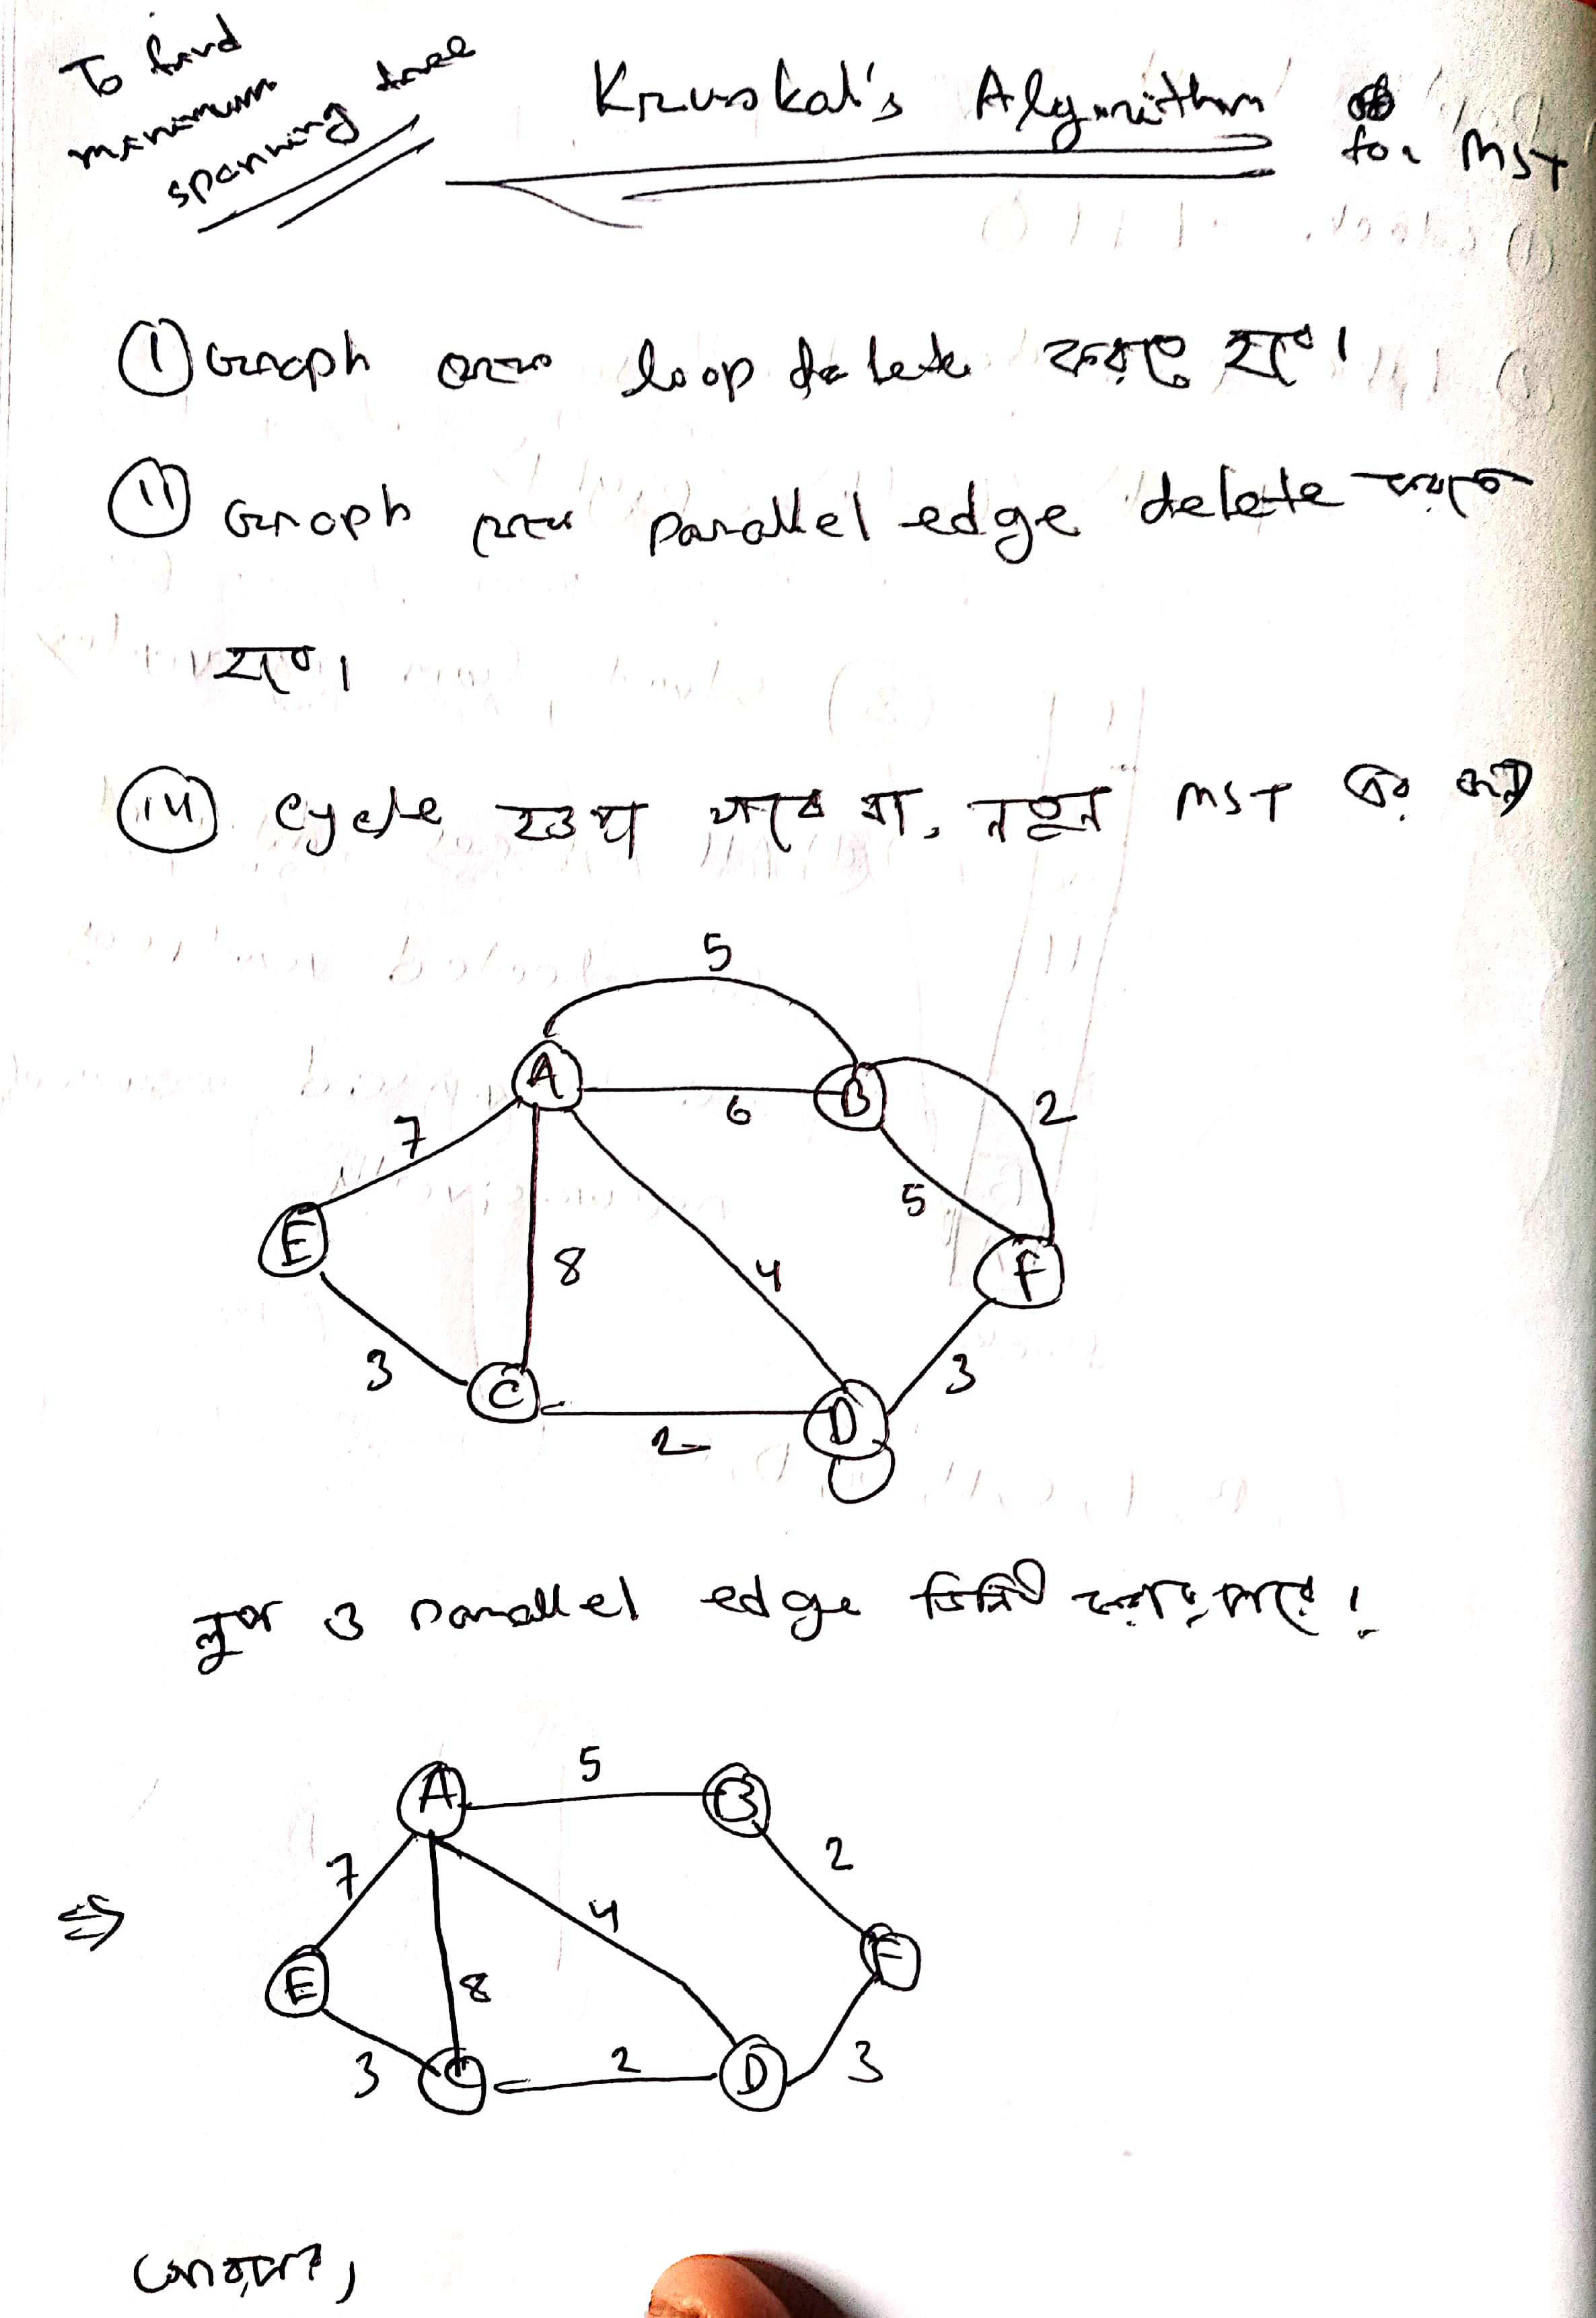 To find
minimum
spanning tree
Kruskal's Algorithm for MST
① Graph থেকে loop delete করতে হবে।
② Graph থেকে parallel edge delete করতে
হবে।
③ cycle হওয়া যাবে না, নতুন MST এর জন্য
5
A 6 B 2
7 5
E 8 4 F
3 C 2 D 3
লুপ ও parallel edge ডিলিট করার পরে।
⇒
A 5 B
7 4 2
E 8 F
3 C 2 D 3